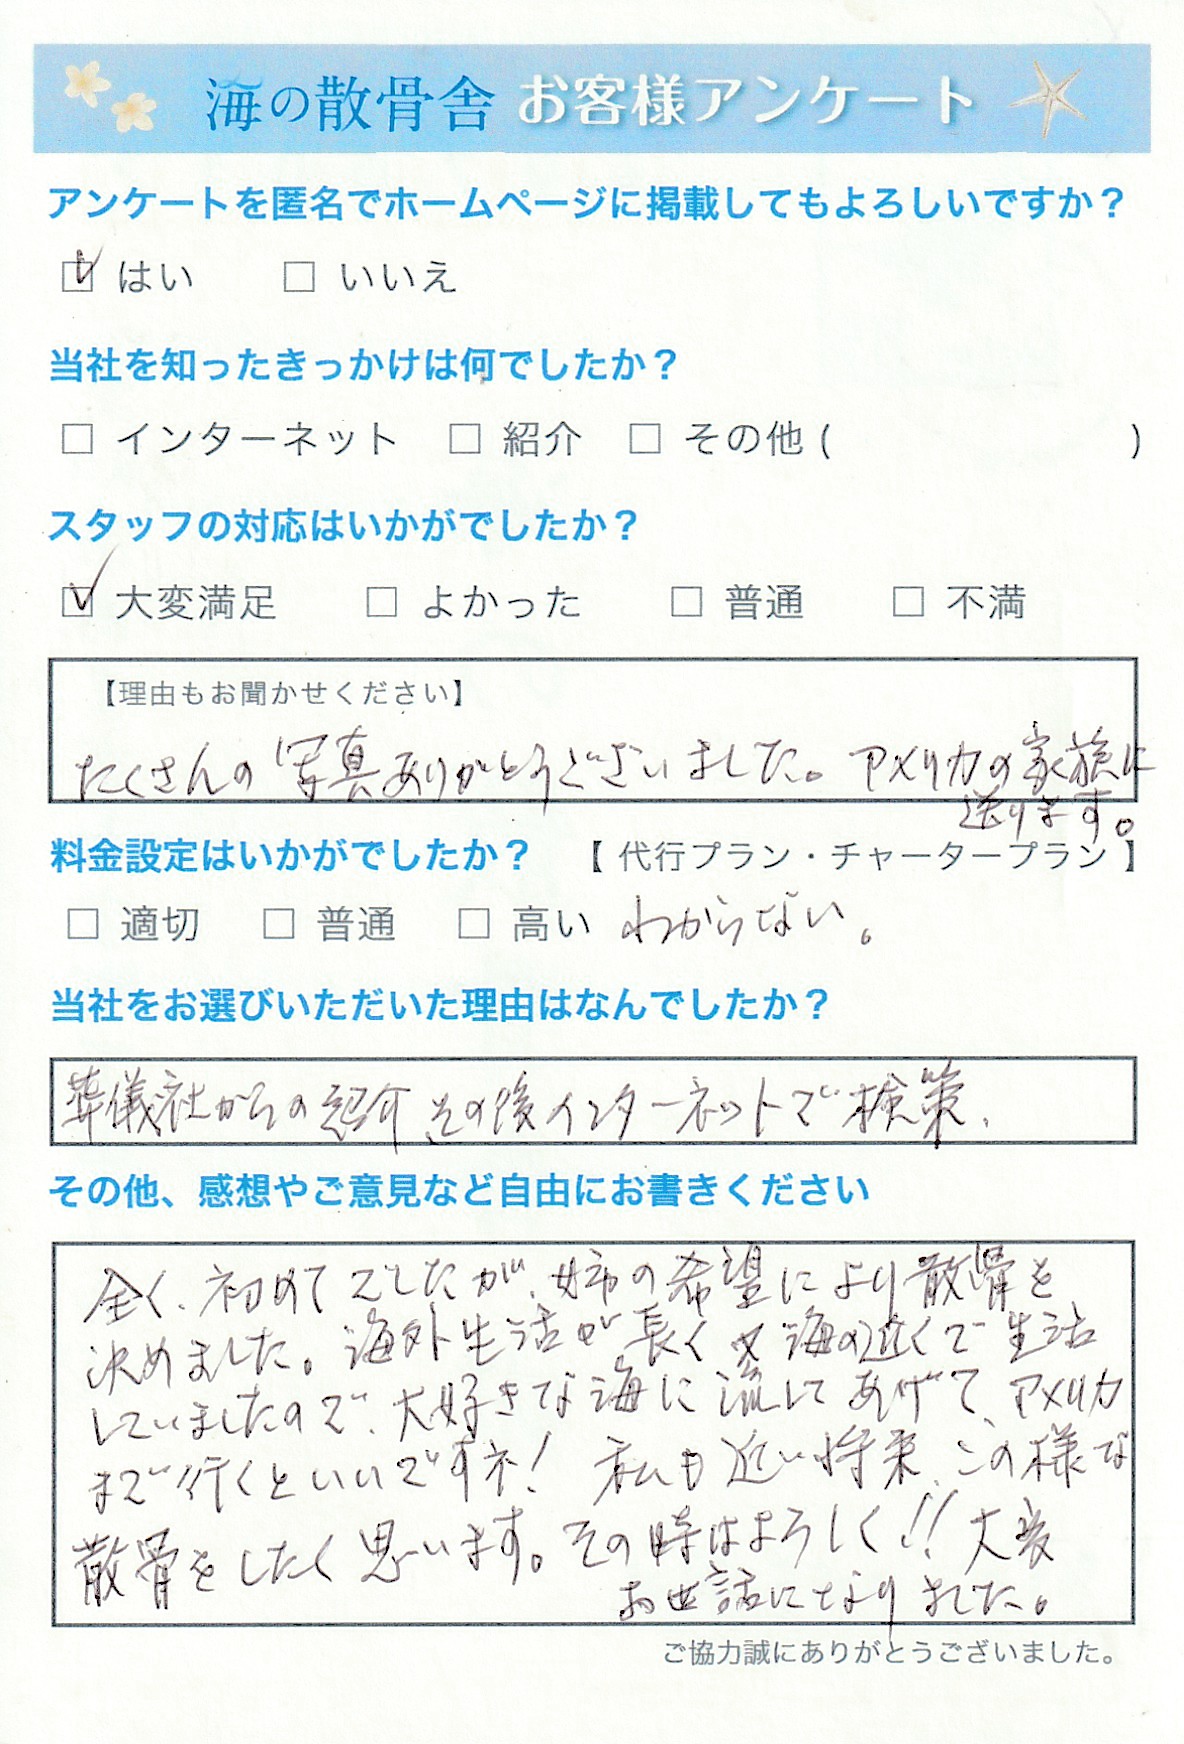 海の散骨舎 お客様アンケート
アンケートを匿名でホームページに掲載してもよろしいですか？
☑ はい □ いいえ
当社を知ったきっかけは何でしたか？
□ インターネット □ 紹介 □ その他 ( )
スタッフの対応はいかがでしたか？
☑ 大変満足 □ よかった □ 普通 □ 不満
【理由もお聞かせください】
たくさんの写真ありがとうございました。アメリカの家族に
送ります。
料金設定はいかがでしたか？ 【 代行プラン・チャータープラン 】
□ 適切 □ 普通 □ 高い わからない。
当社をお選びいただいた理由はなんでしたか？
葬儀社からの紹介、その後インターネットで検策、
その他、感想やご意見など自由にお書きください
全く、初めてでしたが、姉の希望により散骨を
決めました。海外生活が長く又海の近くで生活
していましたので、大好きな海に流してあげて、アメリカ
まで行くといいですネ！ 私も近い将来、この様な
散骨をしたく思います。その時はよろしく!! 大変
お世話になりました。
ご協力誠にありがとうございました。